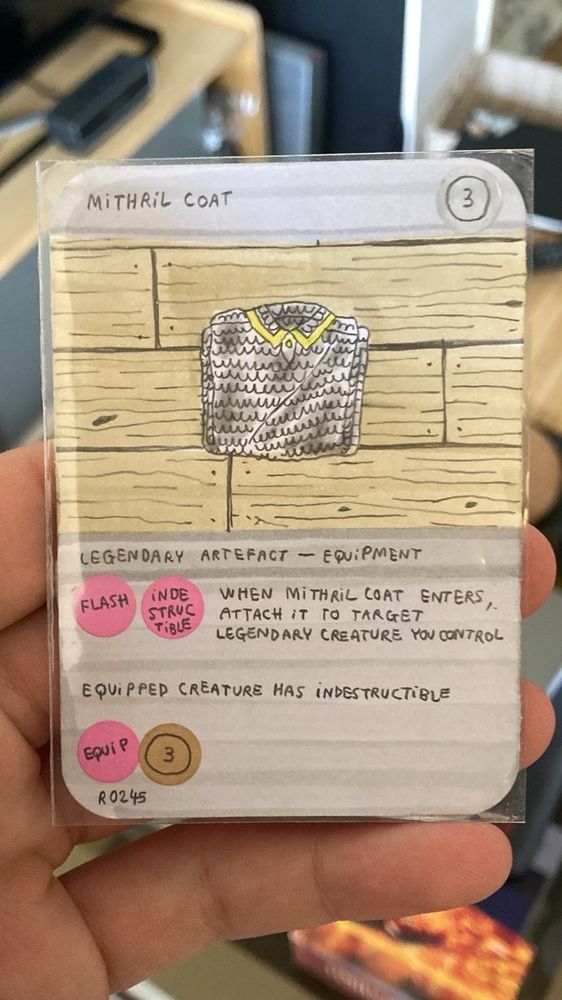 MiTHRiL COAT
3
LEGENDARY ARTEFACT — EQUiPMENT
FLASH
iNDE
STRUC
TiBLE
WHEN MiTHRiL COAT ENTERS,
ATTACH iT TO TARGET
LEGENDARY CREATURE YOU CONTROL
EQUiPPED CREATURE HAS iNDESTRUCTiBLE
EQUiP
3
R0245